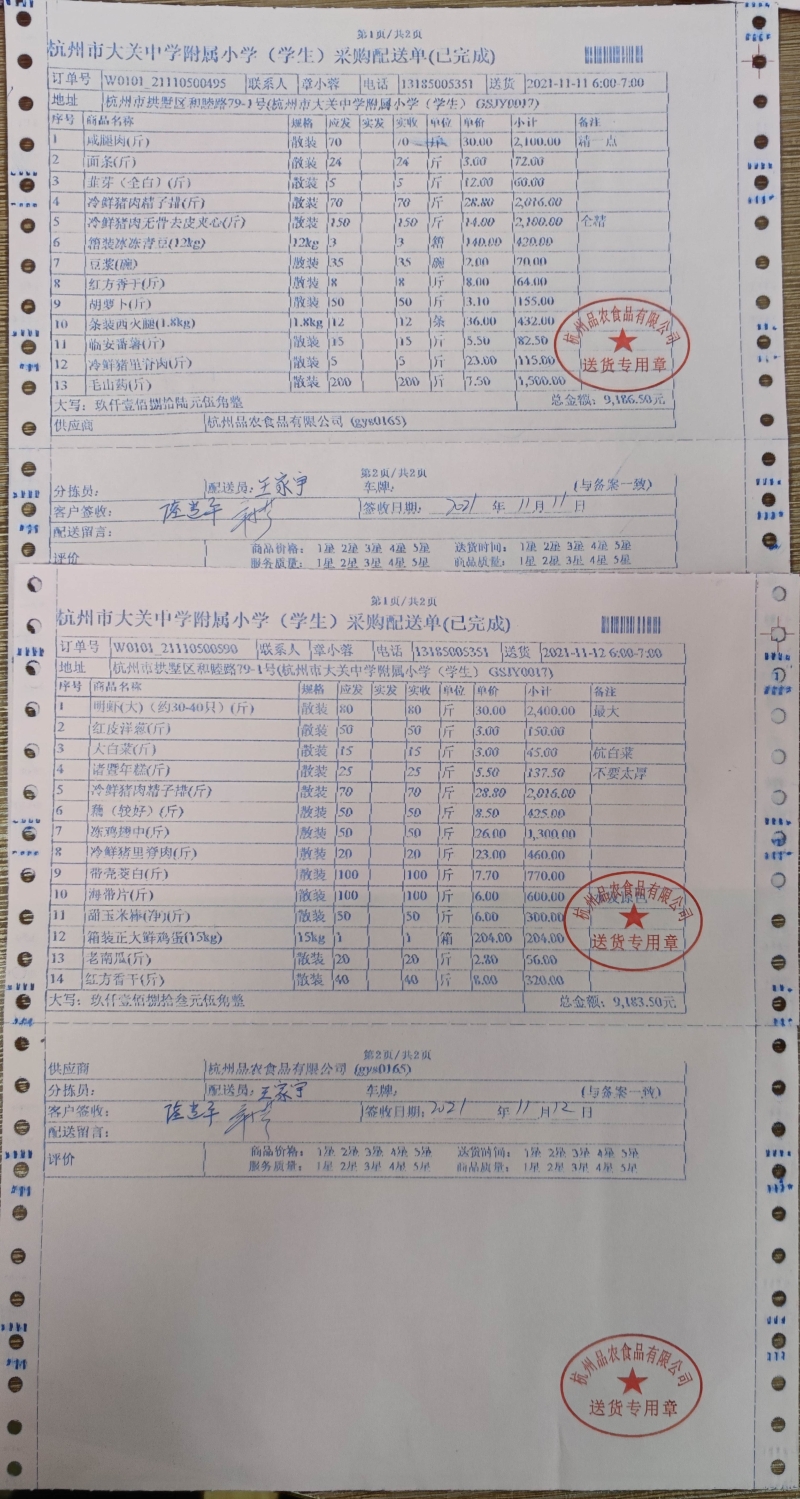 第1页/共2页
杭州市大关中学附属小学（学生）采购配送单(已完成)
订单号 W0101_21110500495 联系人 章小蓉 电话 13185005351 送货 2021-11-11 6:00-7:00
地址 杭州市拱墅区和睦路79-1号(杭州市大关中学附属小学（学生） GSJY0017)
序号 商品名称 规格 应发 实发 实收 单位 单价 小计 备注
1 咸腿肉(斤) 散装 70 70 斤 30.00 2,100.00 精一点
2 面条(斤) 散装 24 24 斤 3.00 72.00
3 韭芽（全白）(斤) 散装 5 5 斤 12.00 60.00
4 冷鲜猪肉精子排(斤) 散装 70 70 斤 28.80 2,016.00
5 冷鲜猪肉无骨去皮夹心(斤) 散装 150 150 斤 14.00 2,100.00 全精
6 箱装冰冻青豆(12kg) 12kg 3 3 箱 140.00 420.00
7 豆浆(碗) 散装 35 35 碗 2.00 70.00
8 红方香干(斤) 散装 8 8 斤 8.00 64.00
9 胡萝卜(斤) 散装 50 50 斤 3.10 155.00
10 条装西火腿(1.8kg) 1.8kg 12 12 条 36.00 432.00
11 临安番薯(斤) 散装 15 15 斤 5.50 82.50
12 冷鲜猪里脊肉(斤) 散装 5 5 斤 23.00 115.00
13 毛山药(斤) 散装 200 200 斤 7.50 1,500.00
大写：玖仟壹佰捌拾陆元伍角整 总金额：9,186.50元
供应商 杭州品农食品有限公司 (gys0165)
杭州品农食品有限公司
送货专用章
第2页/共2页
分拣员： 配送员：王家宇 车牌： (与备案一致)
客户签收： 签收日期： 2021 年 11 月 11 日
配送留言：
评价 商品价格： 1星 2星 3星 4星 5星 送货时间： 1星 2星 3星 4星 5星
服务质量： 1星 2星 3星 4星 5星 商品质量： 1星 2星 3星 4星 5星
第1页/共2页
杭州市大关中学附属小学（学生）采购配送单(已完成)
订单号 W0101_21110500590 联系人 章小蓉 电话 13185005351 送货 2021-11-12 6:00-7:00
地址 杭州市拱墅区和睦路79-1号(杭州市大关中学附属小学（学生） GSJY0017)
序号 商品名称 规格 应发 实发 实收 单位 单价 小计 备注
1 明虾(大)（约30-40只）(斤) 散装 80 80 斤 30.00 2,400.00 最大
2 红皮洋葱(斤) 散装 50 50 斤 3.00 150.00
3 大白菜(斤) 散装 15 15 斤 3.00 45.00 杭白菜
4 诸暨年糕(斤) 散装 25 25 斤 5.50 137.50 不要太厚
5 冷鲜猪肉精子排(斤) 散装 70 70 斤 28.80 2,016.00
6 藕（较好）(斤) 散装 50 50 斤 8.50 425.00
7 冻鸡翅中(斤) 散装 50 50 斤 26.00 1,300.00
8 冷鲜猪里脊肉(斤) 散装 20 20 斤 23.00 460.00
9 带壳茭白(斤) 散装 100 100 斤 7.70 770.00
10 海带片(斤) 散装 100 100 斤 6.00 600.00
11 甜玉米棒(净)(斤) 散装 50 50 斤 6.00 300.00
12 箱装正大鲜鸡蛋(15kg) 15kg 1 1 箱 204.00 204.00
13 老南瓜(斤) 散装 20 20 斤 2.80 56.00
14 红方香干(斤) 散装 40 40 斤 8.00 320.00
大写：玖仟壹佰捌拾叁元伍角整 总金额：9,183.50元
杭州品农食品有限公司
送货专用章
第2页/共2页
供应商 杭州品农食品有限公司 (gys0165)
分拣员： 配送员：王家宇 车牌： (与备案一致)
客户签收： 签收日期： 2021 年 11 月 12 日
配送留言：
评价 商品价格： 1星 2星 3星 4星 5星 送货时间： 1星 2星 3星 4星 5星
服务质量： 1星 2星 3星 4星 5星 商品质量： 1星 2星 3星 4星 5星
杭州品农食品有限公司
送货专用章